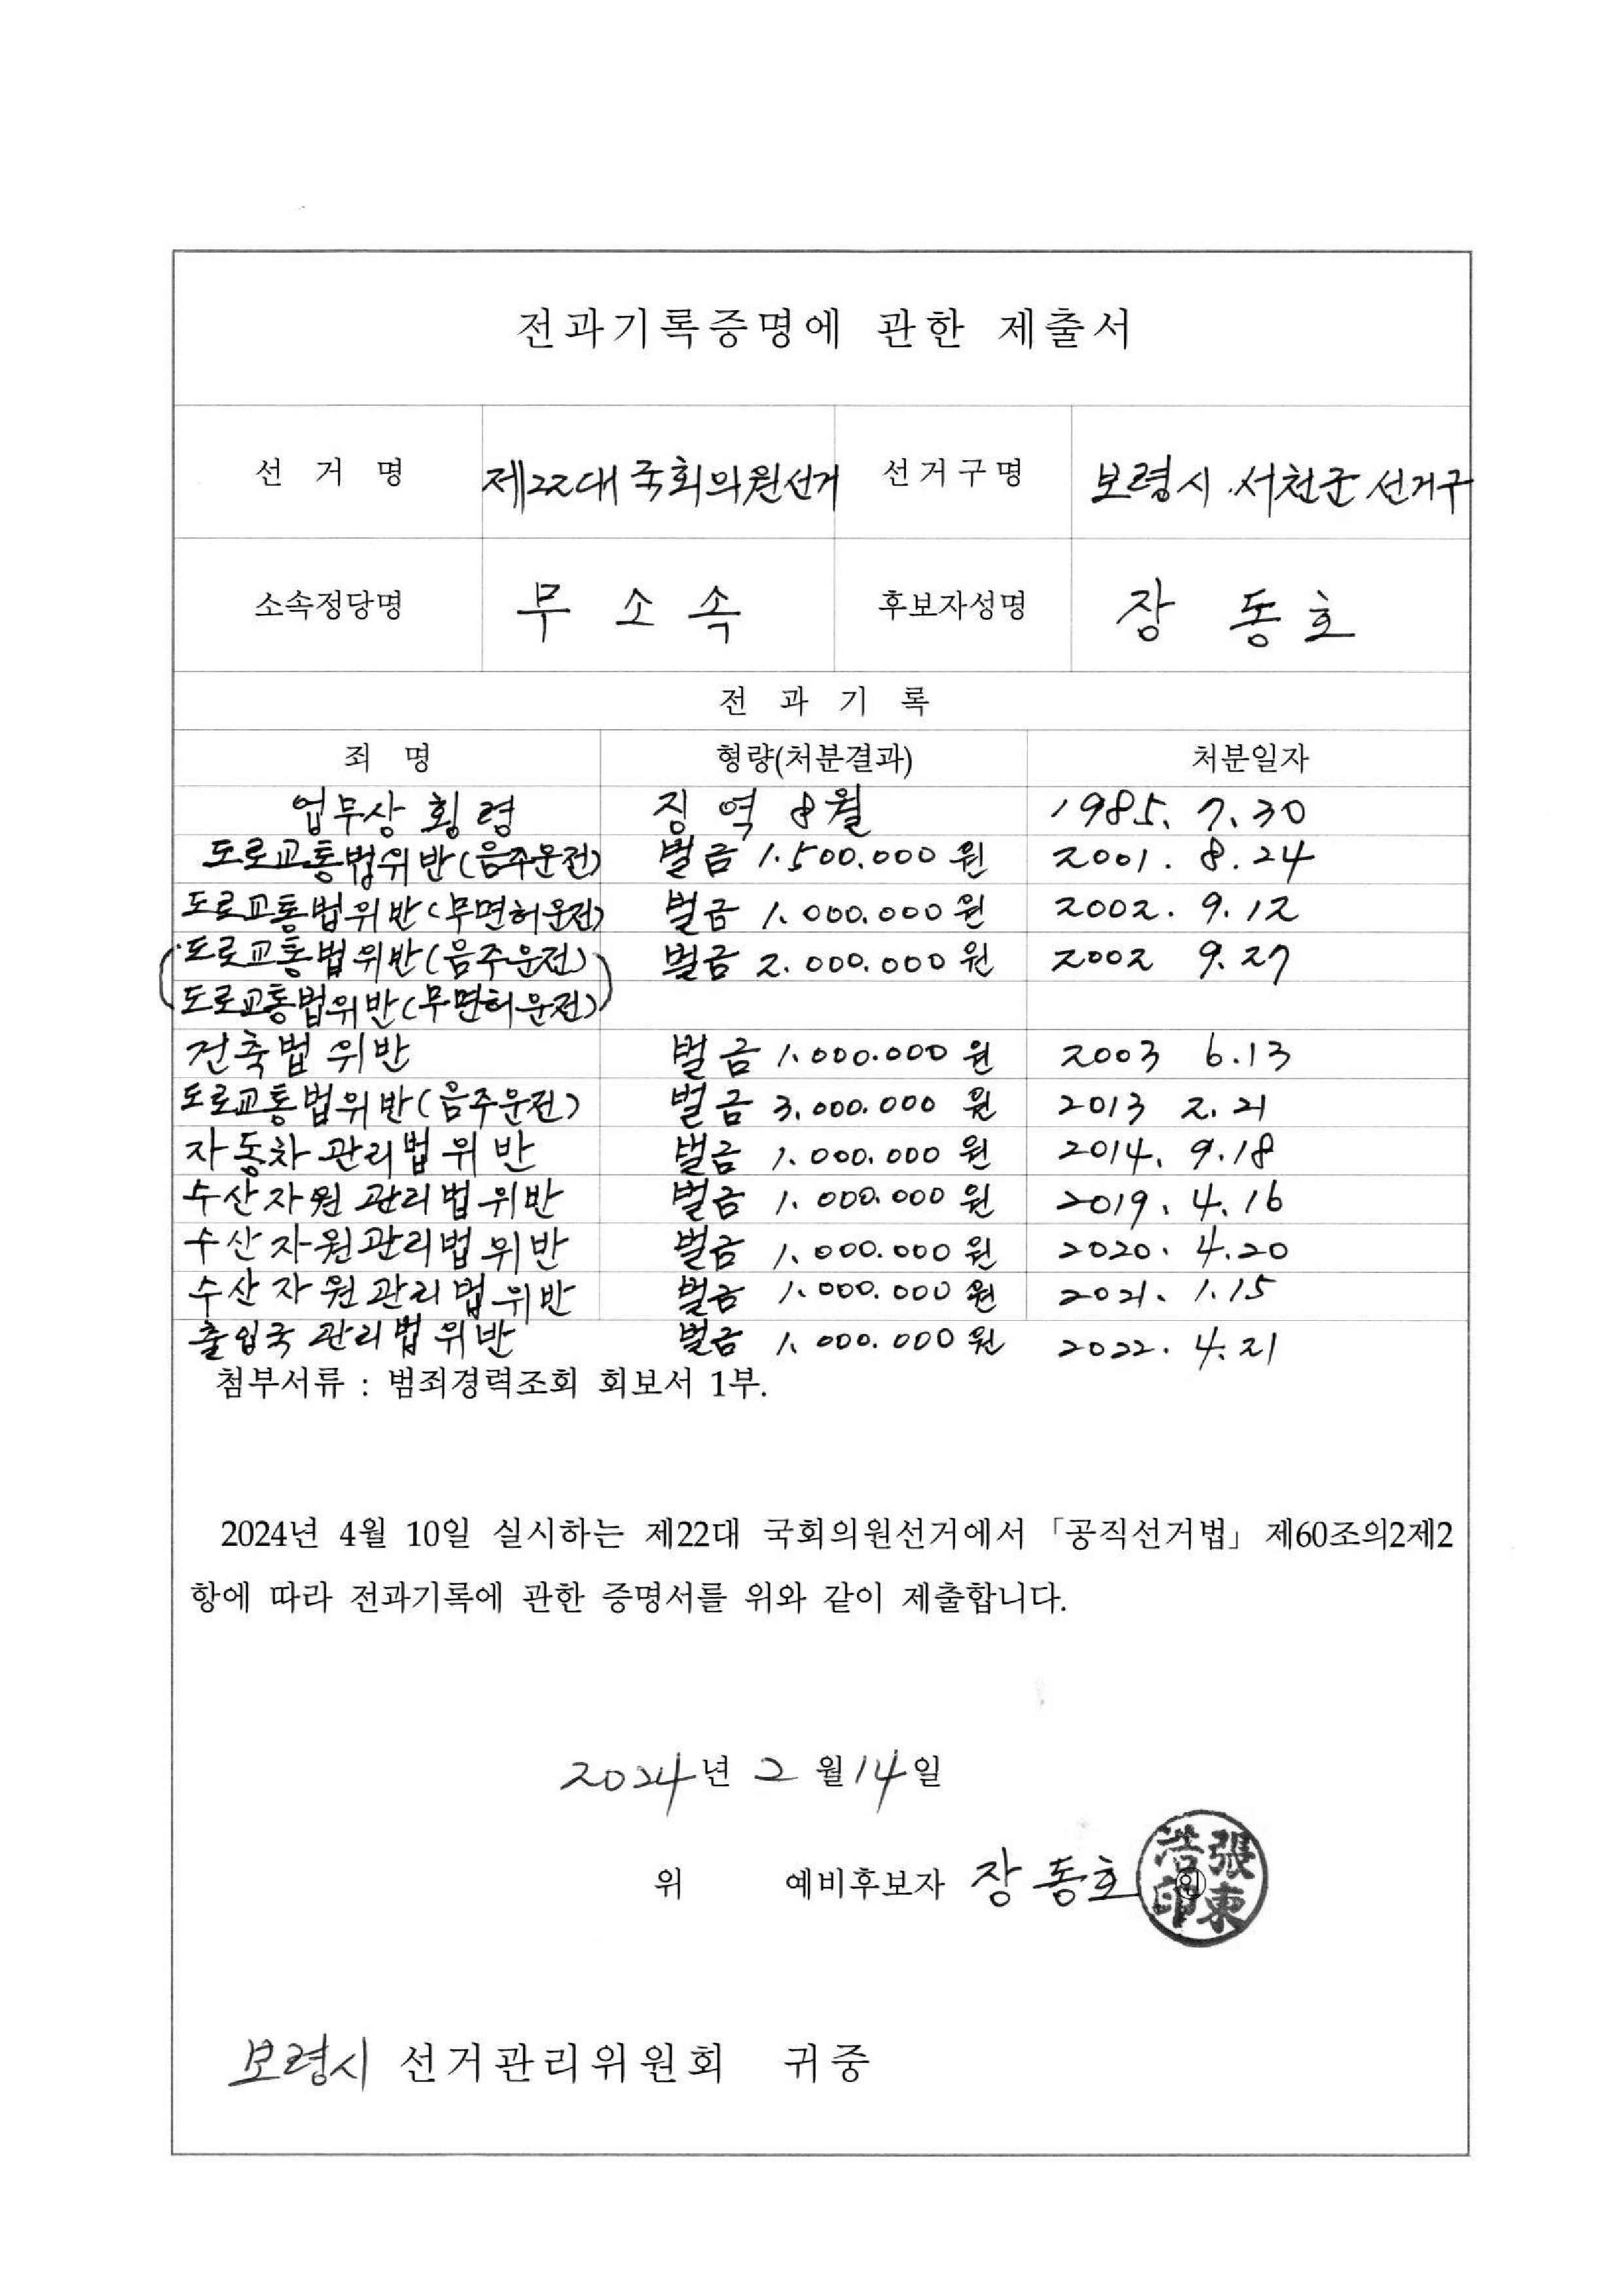 전과기록증명에 관한 제출서
선 거 명 제22대 국회의원선거 선거구명 보령시.서천군 선거구
소속정당명 무 소 속 후보자성명 장 동 호
전 과 기 록
죄 명 형량(처분결과) 처분일자
업무상 횡령 징 역 8월 1985. 7. 30
도로교통법위반(음주운전) 벌금 1.500.000 원 2001. 8. 24
도로교통법위반(무면허운전) 벌금 1.000.000 원 2002. 9. 12
도로교통법위반(음주운전) 벌금 2.000.000 원 2002 9. 27
도로교통법위반(무면허운전)
건축법 위반 벌금 1.000.000 원 2003 6.13
도로교통법위반(음주운전) 벌금 3.000.000 원 2013 2. 21
자동차관리법위반 벌금 1.000.000 원 2014. 9.18
수산자원관리법위반 벌금 1.000.000 원 2019. 4. 16
수산자원관리법위반 벌금 1.000.000 원 2020. 4.20
수산자원관리법위반 벌금 1.000.000 원 2021. 1.15
출입국관리법위반 벌금 1.000.000 원 2022. 4. 21
첨부서류 : 범죄경력조회 회보서 1부.
2024년 4월 10일 실시하는 제22대 국회의원선거에서 「공직선거법」 제60조의2제2
항에 따라 전과기록에 관한 증명서를 위와 같이 제출합니다.
2024년 2월 14일
위 예비후보자 장동호 ㊞
張東浩印
보령시 선거관리위원회 귀중